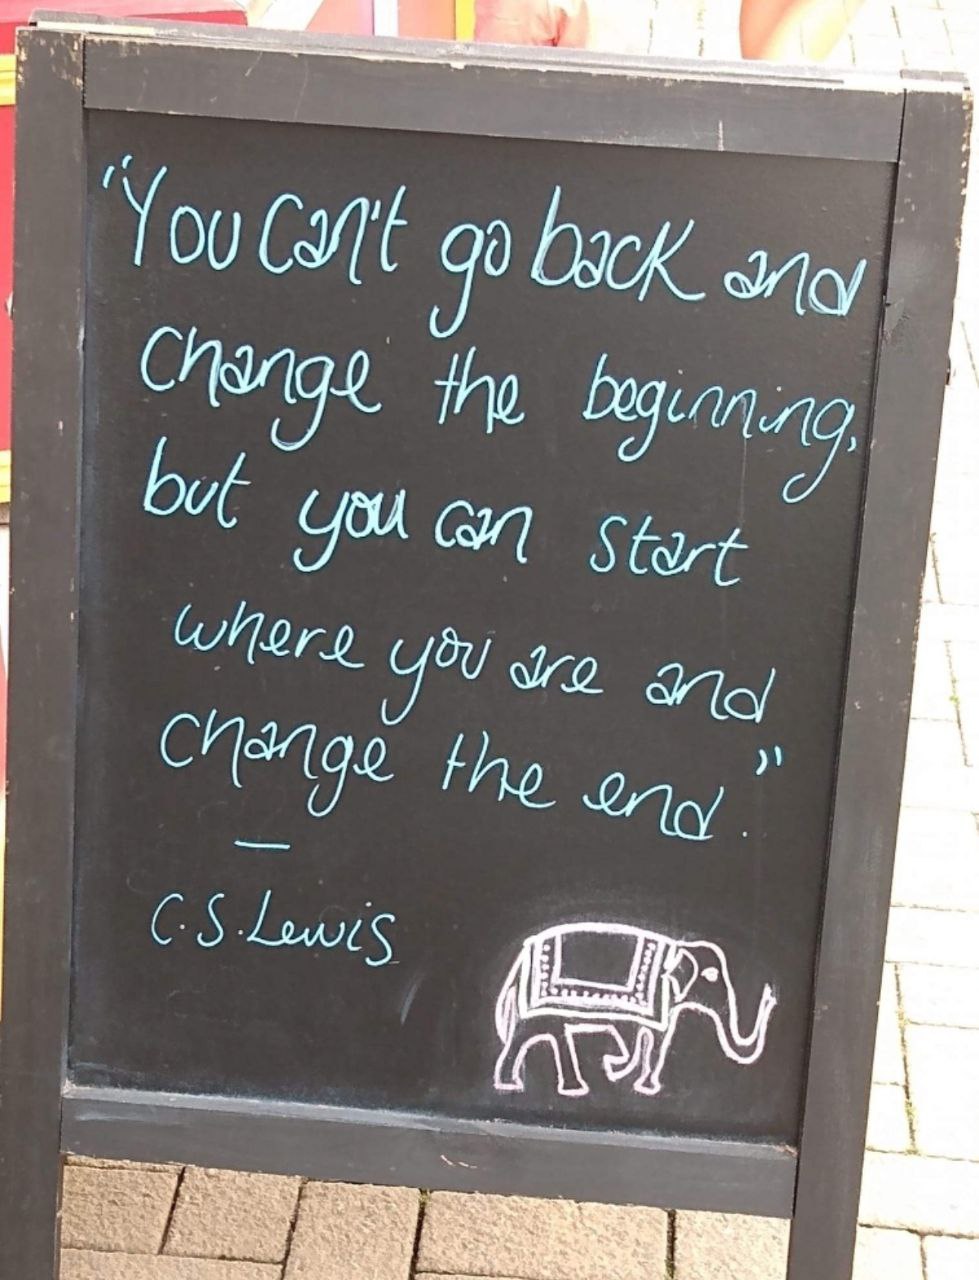 "You can't go back and
change the beginning,
but you can start
where you are and
change the end."
—
C.S. Lewis